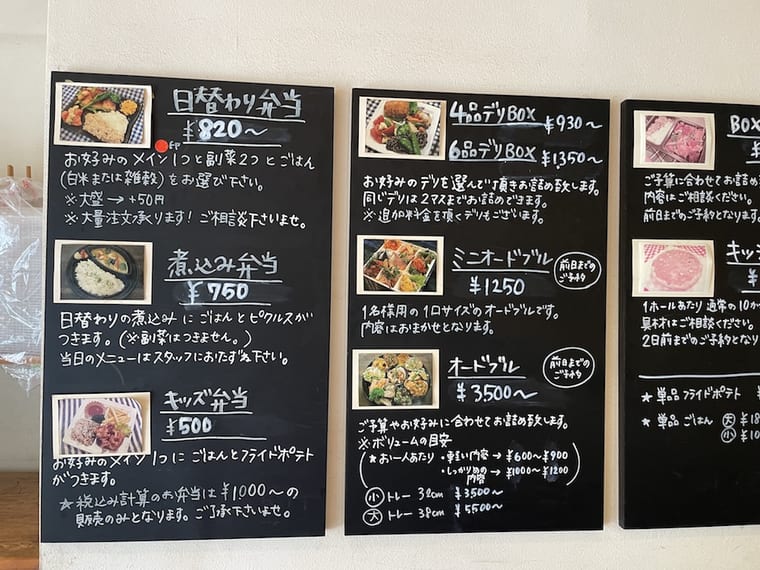 日替わり弁当
¥820～
お好みのメイン1つと副菜2つとごはん
(白米または雑穀)をお選び下さい。
※大盛→+50円
※大量注文承ります！ご相談下さいませ。
煮込み弁当
¥750
日替わりの煮込みにごはんとピクルスが
つきます。(※副菜はつきません。)
当日のメニューはスタッフにおたずね下さい。
キッズ弁当
¥500
お好みのメイン1つにごはんとフライドポテト
がつきます。
★税込み計算のお弁当は¥1000～の
販売のみとなります。ご了承下さいませ。
4品デリBOX ¥930～
6品デリBOX ¥1350～
お好みのデリを選んで頂きお詰め致します。
同じデリは2マスまでお詰めできます。
※追加料金を頂くデリもございます。
ミニオードブル
¥1250
前日までの
ご予約
1名様用の1口サイズのオードブルです。
内容はおまかせとなります。
オードブル
¥3500～
前日までの
ご予約
ご予算やお好みに合わせてお詰め致します。
※ボリュームの目安
(★お一人あたり・軽い内容→¥600～¥900
・しっかりめの内容→¥1000～¥1200)
小 トレー 32cm ¥3500～
大 トレー 38cm ¥5500～
BOX
ご予算に合わせてお詰め
内容はご相談ください。
前日までのご予約となります
キッシ
1ホールあたり通常の10カ
具材はご相談ください。
2日前までのご予約となり
★単品フライドポテト
★単品ごはん 大 ¥18
小 ¥10